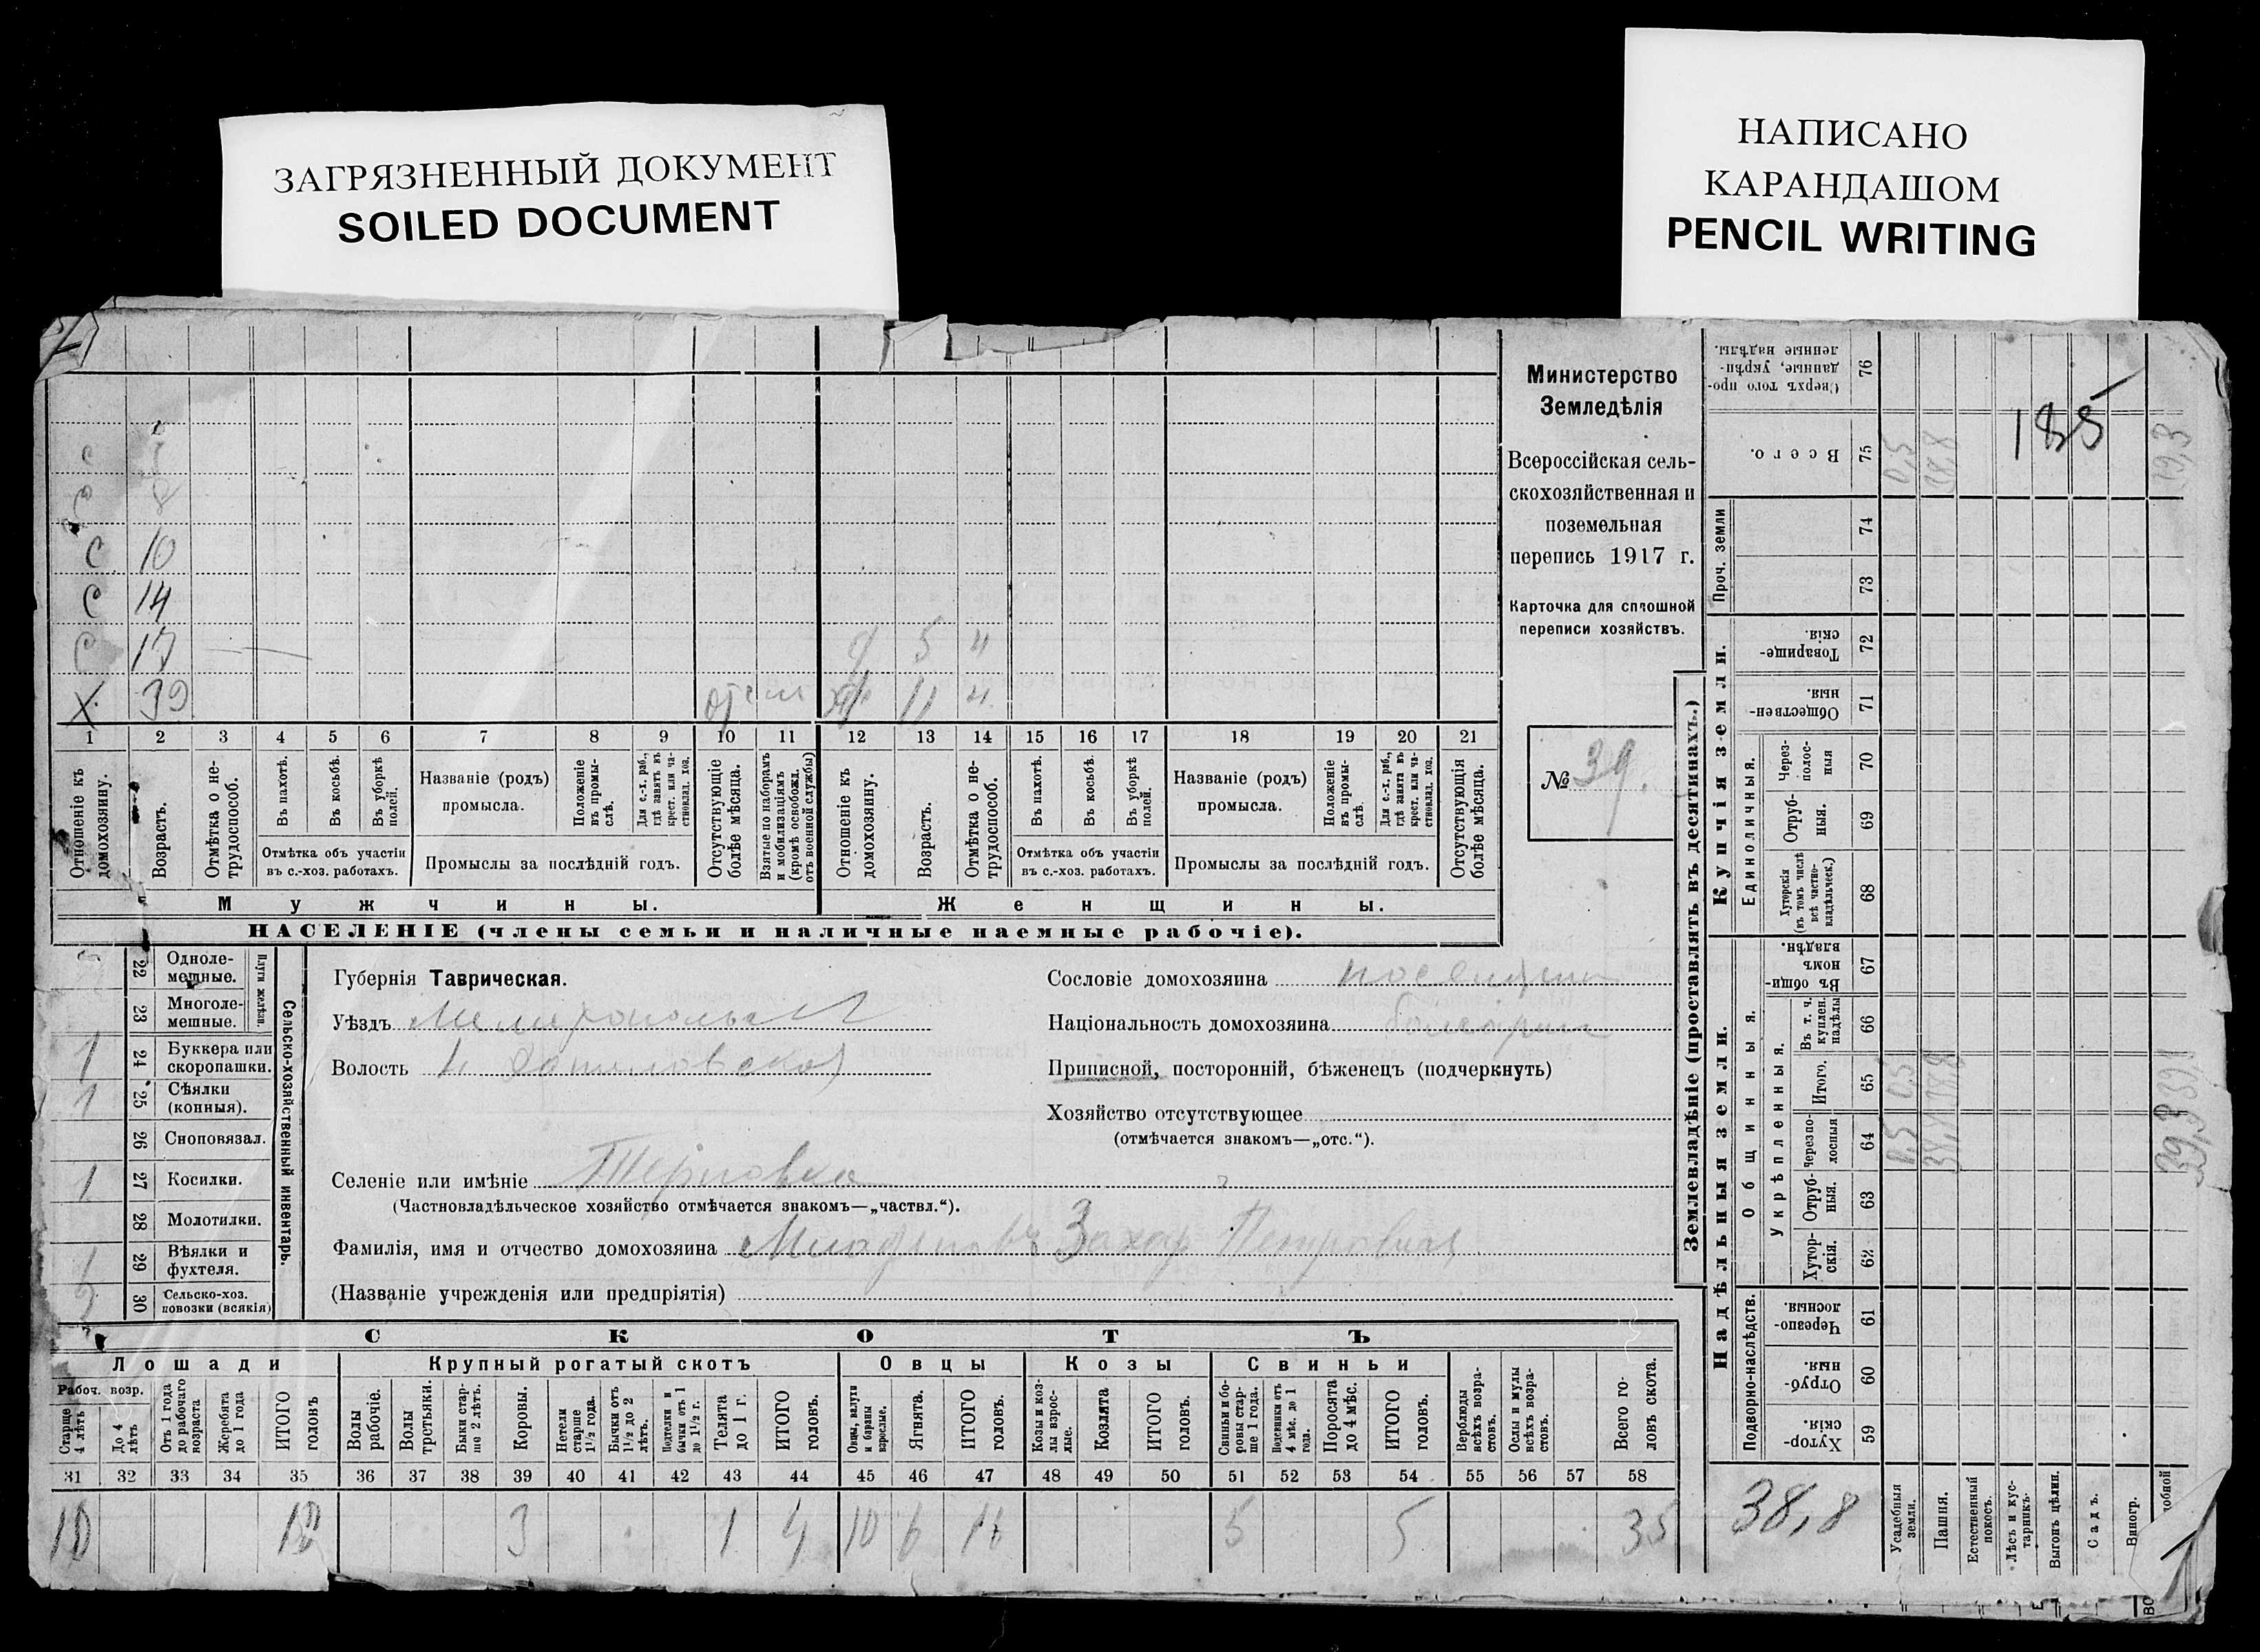 ЗАГРЯЗНЕННЫЙ ДОКУМЕНТ
SOILED DOCUMENT
НАПИСАНО
КАРАНДАШОМ
PENCIL WRITING
С 10
С 14
С 17
5
Х 39
11
1 2 3 4 5 6 7 8 9 10 11 12 13 14 15 16 17 18 19 20 21
Отношеніе къ домохозяину.
Возрастъ.
Отмѣтка о нетрудоспособ.
Въ пахотѣ.
Въ косьбѣ.
Въ уборкѣ полей.
Отмѣтка объ участіи
въ с.-хоз. работахъ.
Названіе (родъ)
промысла.
Положеніе въ промыслѣ.
Для с.-х. раб., гдѣ занятъ въ крест. или частновлад. хоз.
Промыслы за послѣдній годъ.
Отсутствующіе болѣе мѣсяца.
Взятые по наборамъ и мобилизаціямъ (кромѣ освобожд. отъ военной службы)
Отношеніе къ домохозяину.
Возрастъ.
Отмѣтка о нетрудоспособ.
Въ пахотѣ.
Въ косьбѣ.
Въ уборкѣ полей.
Отмѣтка объ участіи
въ с.-хоз. работахъ.
Названіе (родъ)
промысла.
Положеніе въ промыслѣ.
Для с.-х. раб., гдѣ занята въ крест. или частновлад. хоз.
Промыслы за послѣдній годъ.
Отсутствующія болѣе мѣсяца.
Мужчины.
Женщины.
НАСЕЛЕНІЕ (члены семьи и наличные наемные рабочіе).
Министерство
Земледѣлія
Всероссійская сель-
скохозяйственная и
поземельная
перепись 1917 г.
Карточка для сплошной
переписи хозяйствъ.
№ 39.
Сельско-хозяйственный инвентарь.
Плуги желѣзн.
22 Одноле-
мешные.
23 Многоле-
мешные.
1 24 Буккера или
скоропашки.
1 25 Сѣялки
(конныя).
26 Сноповязал.
1 27 Косилки.
28 Молотилки.
1 29 Вѣялки и
фухтеля.
30 Сельско-хоз.
повозки (всякія)
Губернія Таврическая.
Уѣздъ Мелитопольск
Волость
Селеніе или имѣніе Терновка
(Частновладѣльческое хозяйство отмѣчается знакомъ—„частвл.“).
Фамилія, имя и отчество домохозяина Младеновъ Захар Петрович
(Названіе учрежденія или предпріятія)
Сословіе домохозяина поселянин
Національность домохозяина болгарин
Приписной, посторонній, бѣженецъ (подчеркнуть)
Хозяйство отсутствующее
(отмѣчается знакомъ—„отс.“).
СКОТЪ
Лошади
Крупный рогатый скотъ
Овцы
Козы
Свиньи
Рабоч. возр.
Старше 4 лѣтъ
До 4 лѣтъ
Отъ 1 года до рабочаго возраста
Жеребята до 1 года
ИТОГО головъ
Волы рабочіе.
Волы третьяки.
Быки старше 2 лѣтъ.
Коровы.
Нетели старше 1½ года.
Бычки отъ 1½ до 2 лѣтъ.
Подтелки и бычки отъ 1 до 1½ г.
Телята до 1 г.
ИТОГО головъ.
Овцы, валухи и бараны взрослые.
Ягнята.
ИТОГО головъ.
Козы и козлы взрослые.
Козлята
ИТОГО головъ.
Свиньи и боровы старше 1 года.
Подсвинки отъ 4 мѣс. до 1 года.
Поросята до 4 мѣс.
ИТОГО головъ.
Верблюды всѣхъ возрастовъ.
Ослы и мулы всѣхъ возрастовъ.
Всего головъ скота.
31 32 33 34 35 36 37 38 39 40 41 42 43 44 45 46 47 48 49 50 51 52 53 54 55 56 57 58
10 3 1 4 10 6 16 5 5 35
Землевладѣніе (проставлять въ десятинахъ.)
Купчія земли.
Надѣльныя земли.
Сверхъ того проданные, укрѣпленные надѣлы. 76
Всего. 75
0,5
38,8
185
39,3
Проч. земли
74
73
Товарищескія. 72
Общественныя. 71
Единоличныя.
Черезполосныя 70
Отрубныя. 69
Хуторскія (въ томъ числѣ всѣ частновладѣльческ.) 68
Общинныя.
Въ общинномъ владѣн. 67
Укрѣпленныя.
Въ т. ч. куплен. надѣлы 66
Итого. 65
0,5
38,8
Черезполосныя 64
0,5
39,3
Отрубныя. 63
Хуторскія. 62
Подворно-наслѣдств.
Черезполосныя. 61
Отрубныя. 60
Хуторскія. 59
38,8
Усадебныя земли.
Пашня.
Естественный покосъ.
Лѣсъ и кустарникъ.
Выгонъ цѣлин.
Садъ.
Виногр.
1